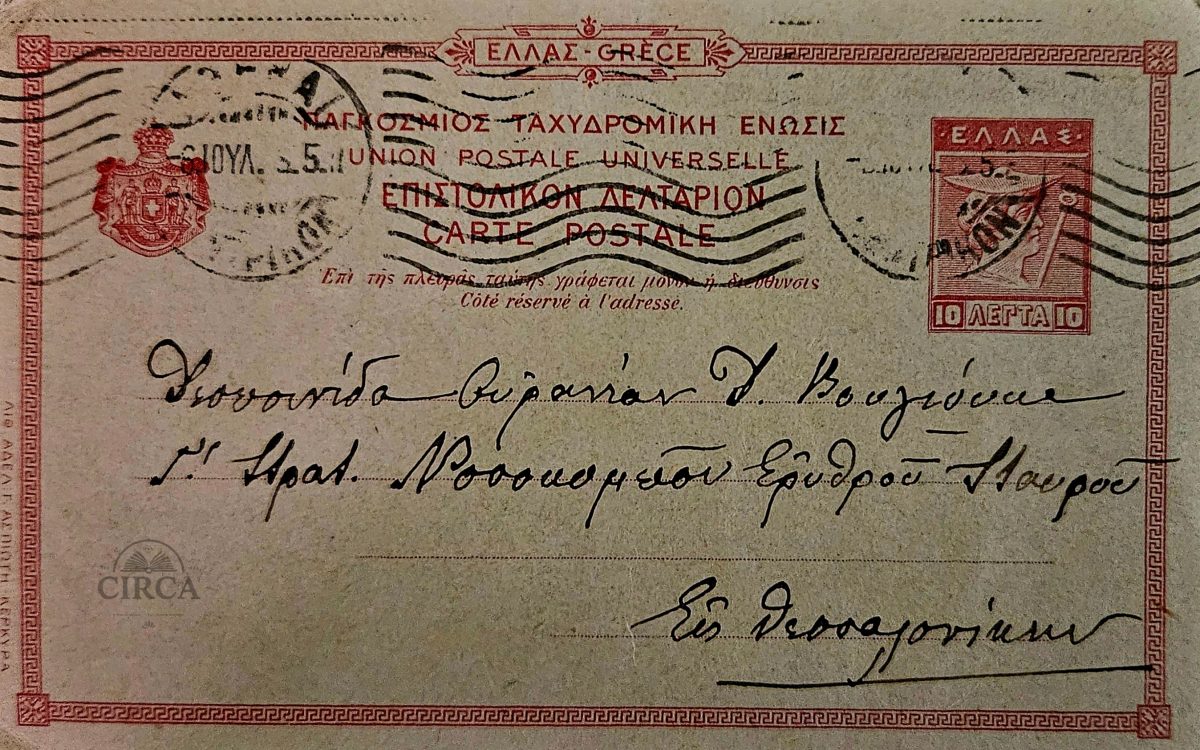 ΕΛΛΑΣ-GRÈCE
ΠΑΓΚΟΣΜΙΟΣ ΤΑΧΥΔΡΟΜΙΚΗ ΕΝΩΣΙΣ
UNION POSTALE UNIVERSELLE
ΕΠΙΣΤΟΛΙΚΟΝ ΔΕΛΤΑΡΙΟΝ
CARTE POSTALE
Ἐπὶ τῆς πλευρᾶς ταύτης γράφεται μόνον ἡ διεύθυνσις
Côté réservé à l'adresse.
ΕΛΛΑΣ
10 ΛΕΠΤΑ 10
ΙΟΥΛ.
Δεσποινίδα Οὐρανίαν Δ.
Γ' Στρατ. Νοσοκομεῖον Ἐρυθροῦ Σταυροῦ
Εἰς Θεσσαλονίκην
CIRCA
ΚΕΡΚΥΡΑ